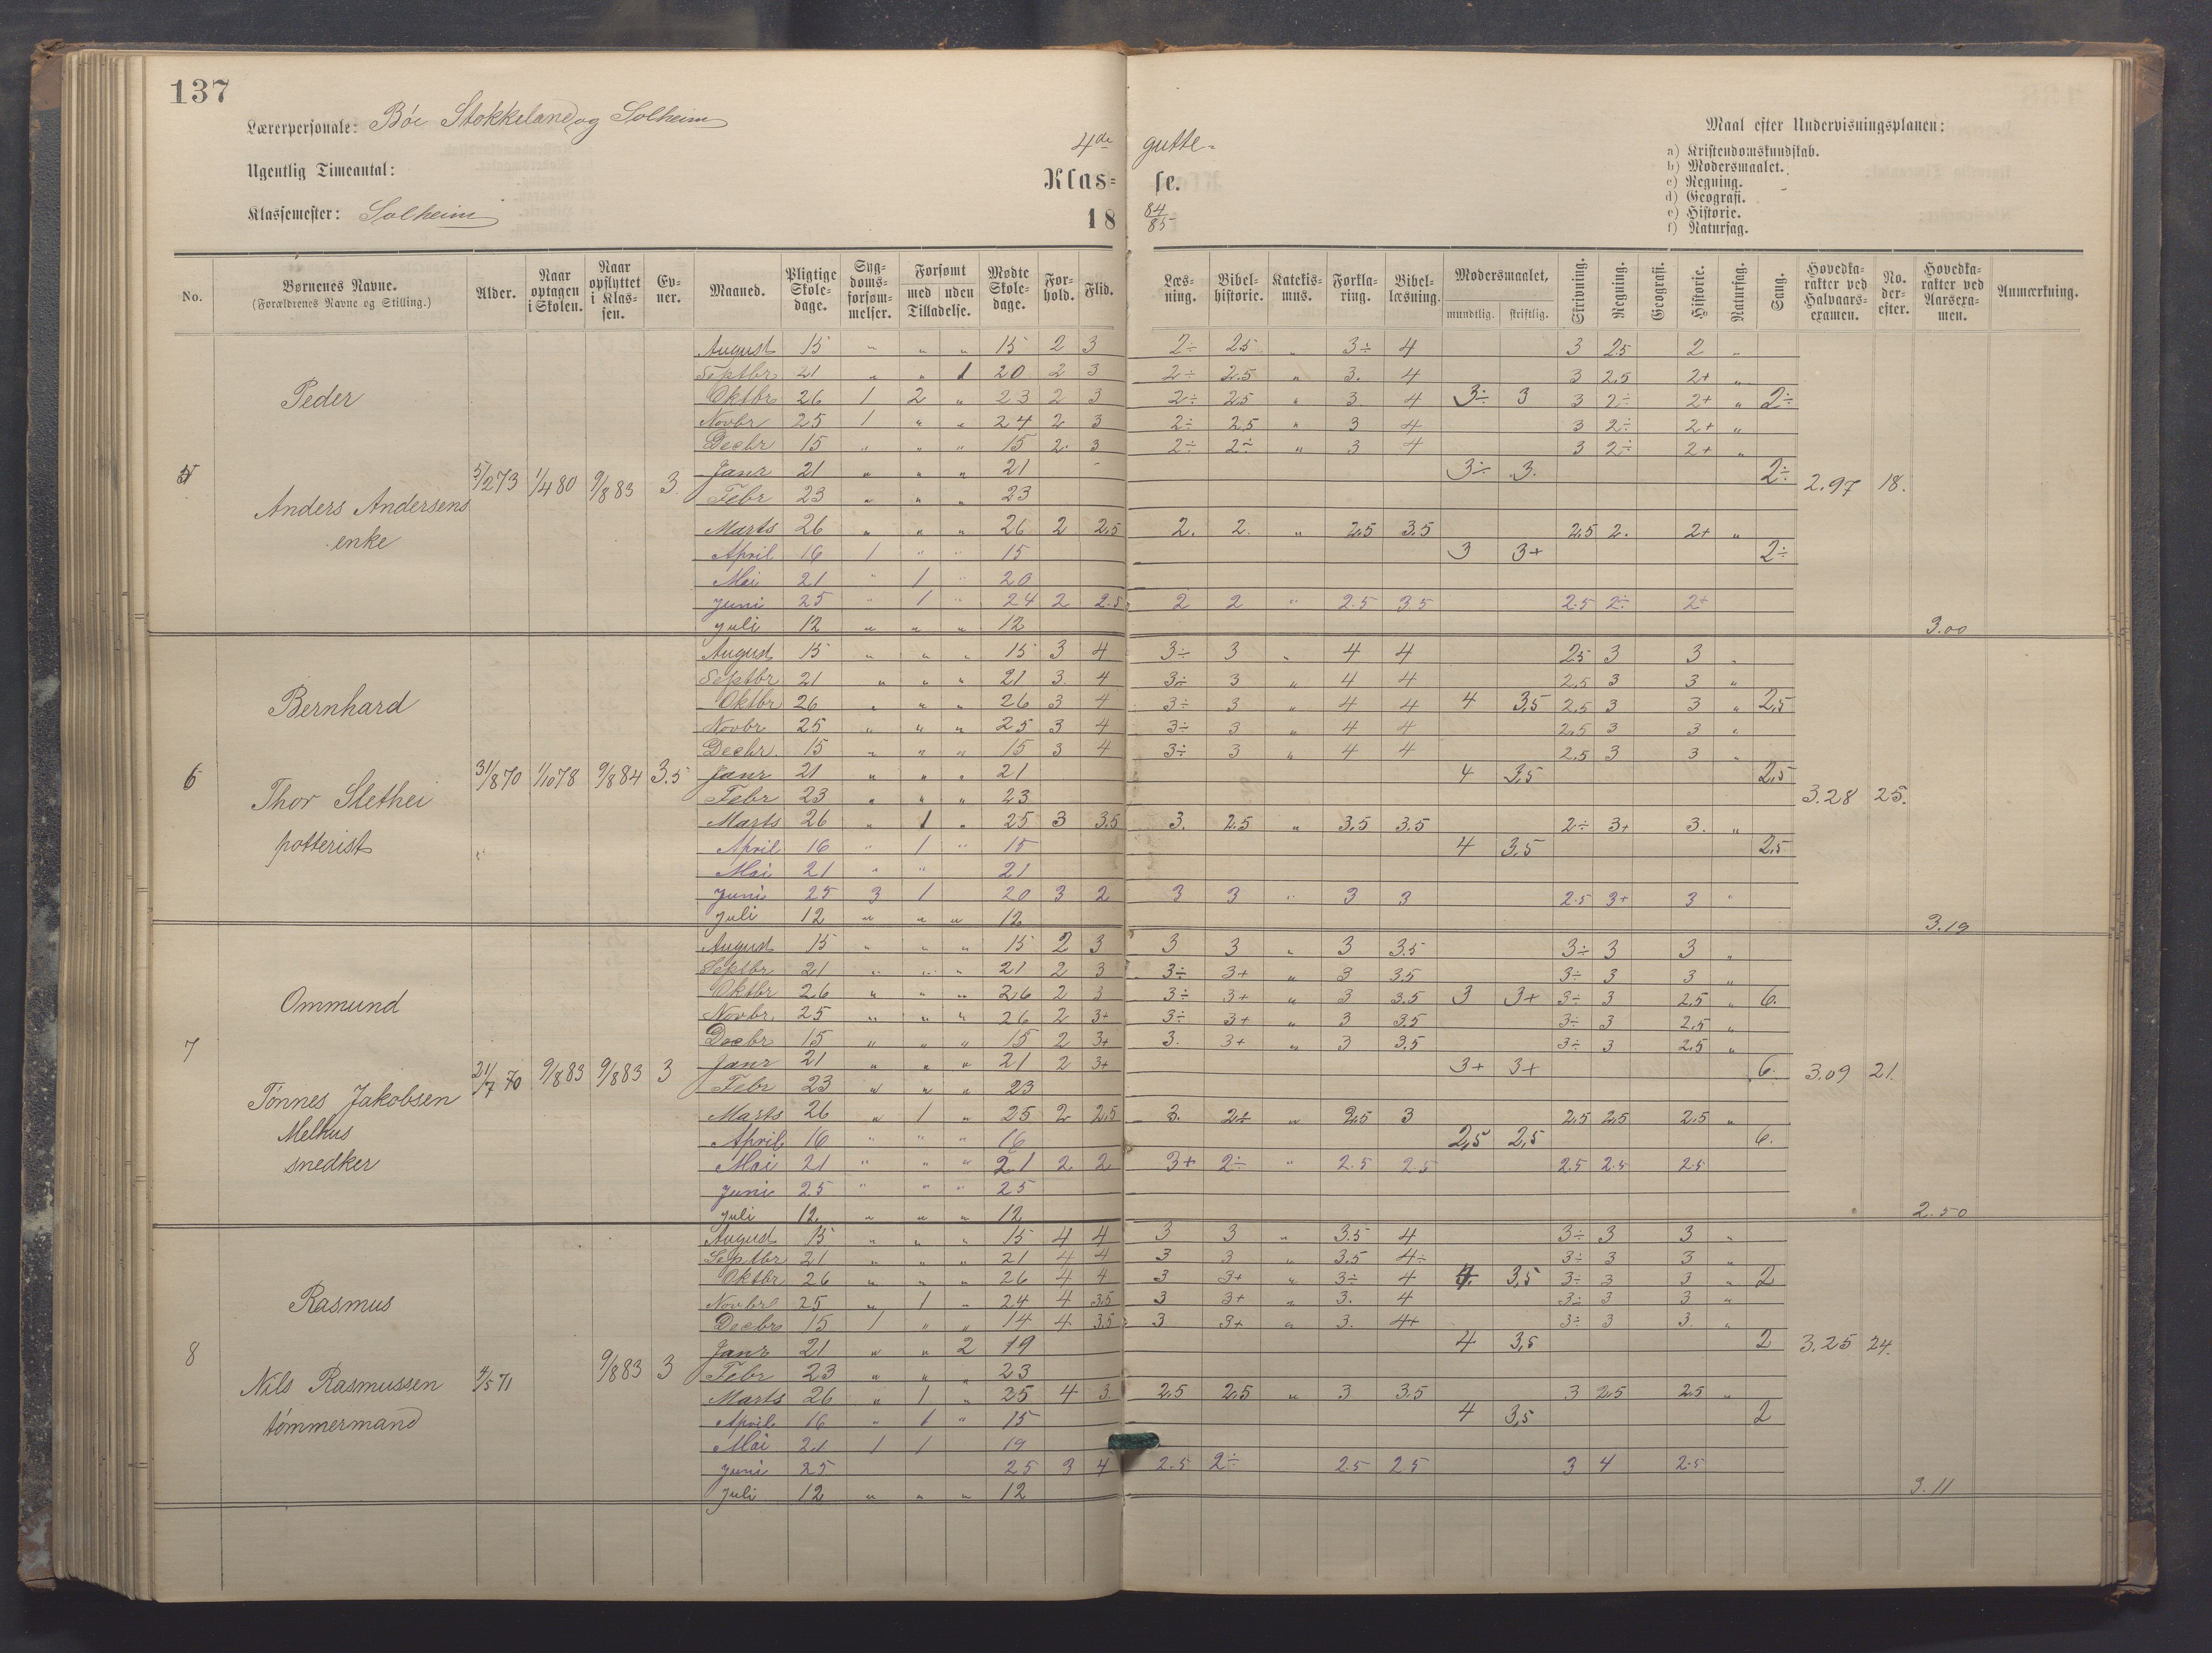 137
Lærerpersonale: Bóe Stokkeland og Solheim
Ugentlig Timeantal:
Klassemester: Solheim
4de gutte-
Klas- se.
18 84/85
Maal efter Undervisningsplanen:
a) Kristendomskundskab.
b) Modersmaalet.
c) Regning.
d) Geografi.
e) Historie.
f) Naturfag.
No. | Børnenes Navne. (Forældrenes Navne og Stilling.) | Alder. | Naar optagen i Skolen. | Naar opflyttet i Klassen. | Evner. | Maaned. | Pligtige Skoledage. | Sygdomsforsømmelser. | Forsømt med Tilladelse. | uden | Mødte Skoledage. | Forhold. | Flid. | Læsning. | Bibelhistorie. | Katekismus. | Forklaring. | Bibellæsning. | Modersmaalet, mundtlig. | skriftlig. | Skrivning. | Regning. | Geografi. | Historie. | Naturfag. | Sang. | Hovedkarakter ved Halvaarsexamen. | No. derefter. | Hovedkarakter ved Aarsexamen. | Anmærkning.
Peder
Anders Andersens
enke
5/2 73 1/4 80 9/8 83 3. 2.97 18.
August 15 " " " 15 2 3 2÷ 2.5 " 3÷ 4 3 2.5 2 "
Septbr 21 " " 1 20 2 3 2÷ 2.5 " 3. 4 3 2.5 2+ "
Oktbr 26 1 2 " 23 2 3 2÷ 2.5 " 3 4 3÷ 3 3 2÷ 2+ " 2÷
Novbr 25 1 " " 24 2 3 2÷ 2.5 " 3 4 3 2÷ 2+ "
Decbr 15 " " " 15 2 3 2÷ 2÷ " 3 4 3 2÷ 2+ "
Janr 21 " " " 21 3÷ 3. 2÷
Febr 23 " " " 23
Marts 26 " " " 26 2 2,5 2. 2. " 2,5 3.5 2,5 2. 2+ "
April 16 1 " " 15 3 3+ 2÷
Mai 21 " 1 " 20
Juni 25 " 1 " 24 2 2.5 2 2 " 2.5 3.5 2.5 2÷ 2+
Juli 12 " " " 12 3.00
6
Bernhard
Thor Slethei
potterist
31/8 70 1/10 78 9/8 84 3.5 3.28 25.
August 15 " " " 15 3 4 3÷ 3 " 4 4 2.5 3 3 "
Septbr 21 " " " 21 3 4 3÷ 3 " 4 4 2.5 3 3 "
Oktbr 26 " " " 26 3 4 3÷ 3 " 4 4 4 3,5 2.5 3 3 " 2,5
Novbr 25 " " " 25 3 4 3÷ 3 " 4 4 2.5 3 3 "
Decbr. 15 " " " 15 3 4 3÷ 3 " 4 4 2.5 3 3 "
Janr 21 " " " 21 4 3,5 2,5
Febr 23 " " " 23
Marts 26 " 1 " 25 3 3.5 3. 2.5 " 3.5 3.5 2÷ 3+ 3. "
April 16 " 1 " 15 4 3,5 2,5
Mai 21 " " 21
Juni 25 3 1 20 3 2 3 3 " 3 3 2.5 3+ 3 "
Juli 12 " " " 12 3.19
7
Ommund
Tónnes Jakobsen
Melhus
snedker
21/7 70 9/8 83 9/8 83 3 3.09 21.
August 15 " " " 15 2 3 3 3 " 3 3.5 3÷ 3 3 "
Septbr 21 " " " 21 2 3 3÷ 3+ " 3 3.5 3÷ 3 3 "
Oktbr 26 " " " 26 2 3 3÷ 3+ " 3 3.5 3 3+ 3÷ 3 2.5 " 6.
Novbr. 25 " " " 26 2 3+ 3÷ 3+ " 3 3.5 3÷ 3 2.5 "
Decbr 15 " " " 15 2 3+ 3. 3+ " 3 3.5 3÷ 3 2.5 "
Janr 21 " " " 21 2 3+ 3+ 3+ 6.
Febr 23 " " " 23
Marts 26 " 1 " 25 2 2.5 3. 2÷ " 2,5 3 2.5 2,5 2.5 "
April 16 " " " 16 2,5 2,5 6.
Mai 21 " " " 21 2 2 3+ 2÷ " 2.5 2.5 2.5 2.5 2.5
Juni 25 " " " 25
Juli 12 " " " 12 2.50
8
Rasmus
Nils Rasmussen
tómmermand
4/5 71 9/8 83 3 3.25 24.
August 15 " " " 15 4 4 3 3 " 3.5 4 3÷ 3 3 "
Septbr 21 " " " 21 4 4 3 3 " 3.5 4÷ 3÷ 3 3 "
Oktbr 26 " " " 26 4 4 3 3+ " 3÷ 4 4. 3,5 3÷ 3 3 " 2
Novbr 25 " 1 " 24 4 3.5 3 3+ " 3. 4 3÷ 3 3 "
Decbr 15 1 " " 14 4 3.5 3 3+ " 3. 4+ 3÷ 3 3. "
Janr 21 " " 2 19 4 3,5 2
Febr 23 " " " 23
Marts 26 " 1 " 25 4 3. 2.5 2.5 " 3 3.5 3 2.5 2.5 "
April 16 " 1 " 15 4 3,5 2
Mai 21 1 1 19
Juni 25 25 3 4 2.5 2÷ 2.5 2.5 3 4 2.5
Juli 12 " " " 12 3.11